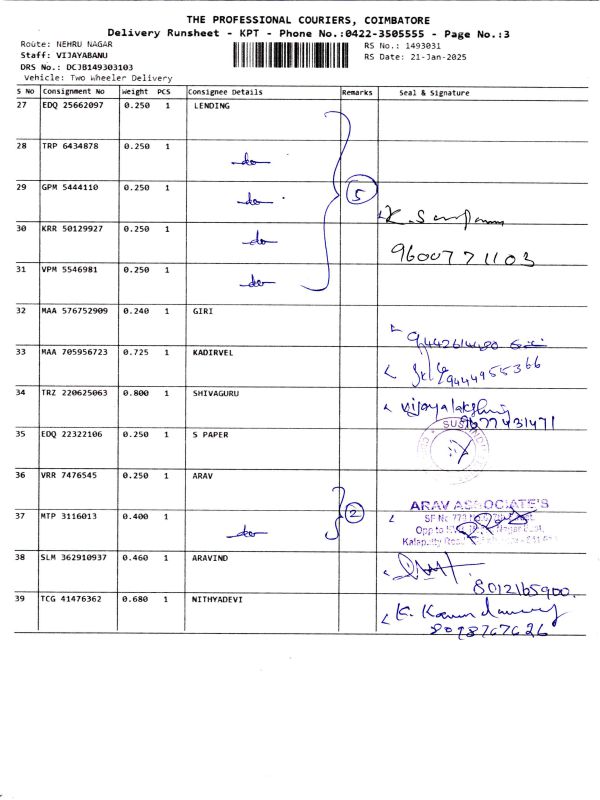 THE PROFESSIONAL COURIERS, COIMBATORE
Delivery Runsheet - KPT - Phone No.:0422-3505555 - Page No.:3
Route: NEHRU NAGAR RS No.: 1493031
Staff: VIJAYABANU RS Date: 21-Jan-2025
DRS No.: DCJB149303103
Vehicle: Two Wheeler Delivery
S No Consignment No Weight PCS Consignee Details Remarks Seal & Signature
27 EDQ 25662097 0.250 1 LENDING
28 TRP 6434878 0.250 1
do
29 GPM 5444110 0.250 1 5
do
30 KRR 50129927 0.250 1
do 9600771103
31 VPM 5546981 0.250 1
do
32 MAA 576752909 0.240 1 GIRI
9442614480 Giri
33 MAA 705956723 0.725 1 KADIRVEL
9444955366
34 TRZ 220625063 0.800 1 SHIVAGURU
vijayalakshmi
9677431471
35 EDQ 22322106 0.250 1 S PAPER
36 VRR 7476545 0.250 1 ARAV
2 ARAV ASSOCIATE'S
37 MTP 3116013 0.400 1
do Opp to
38 SLM 362910937 0.460 1 ARAVIND
8012165900.
39 TCG 41476362 0.680 1 NITHYADEVI
8098767626